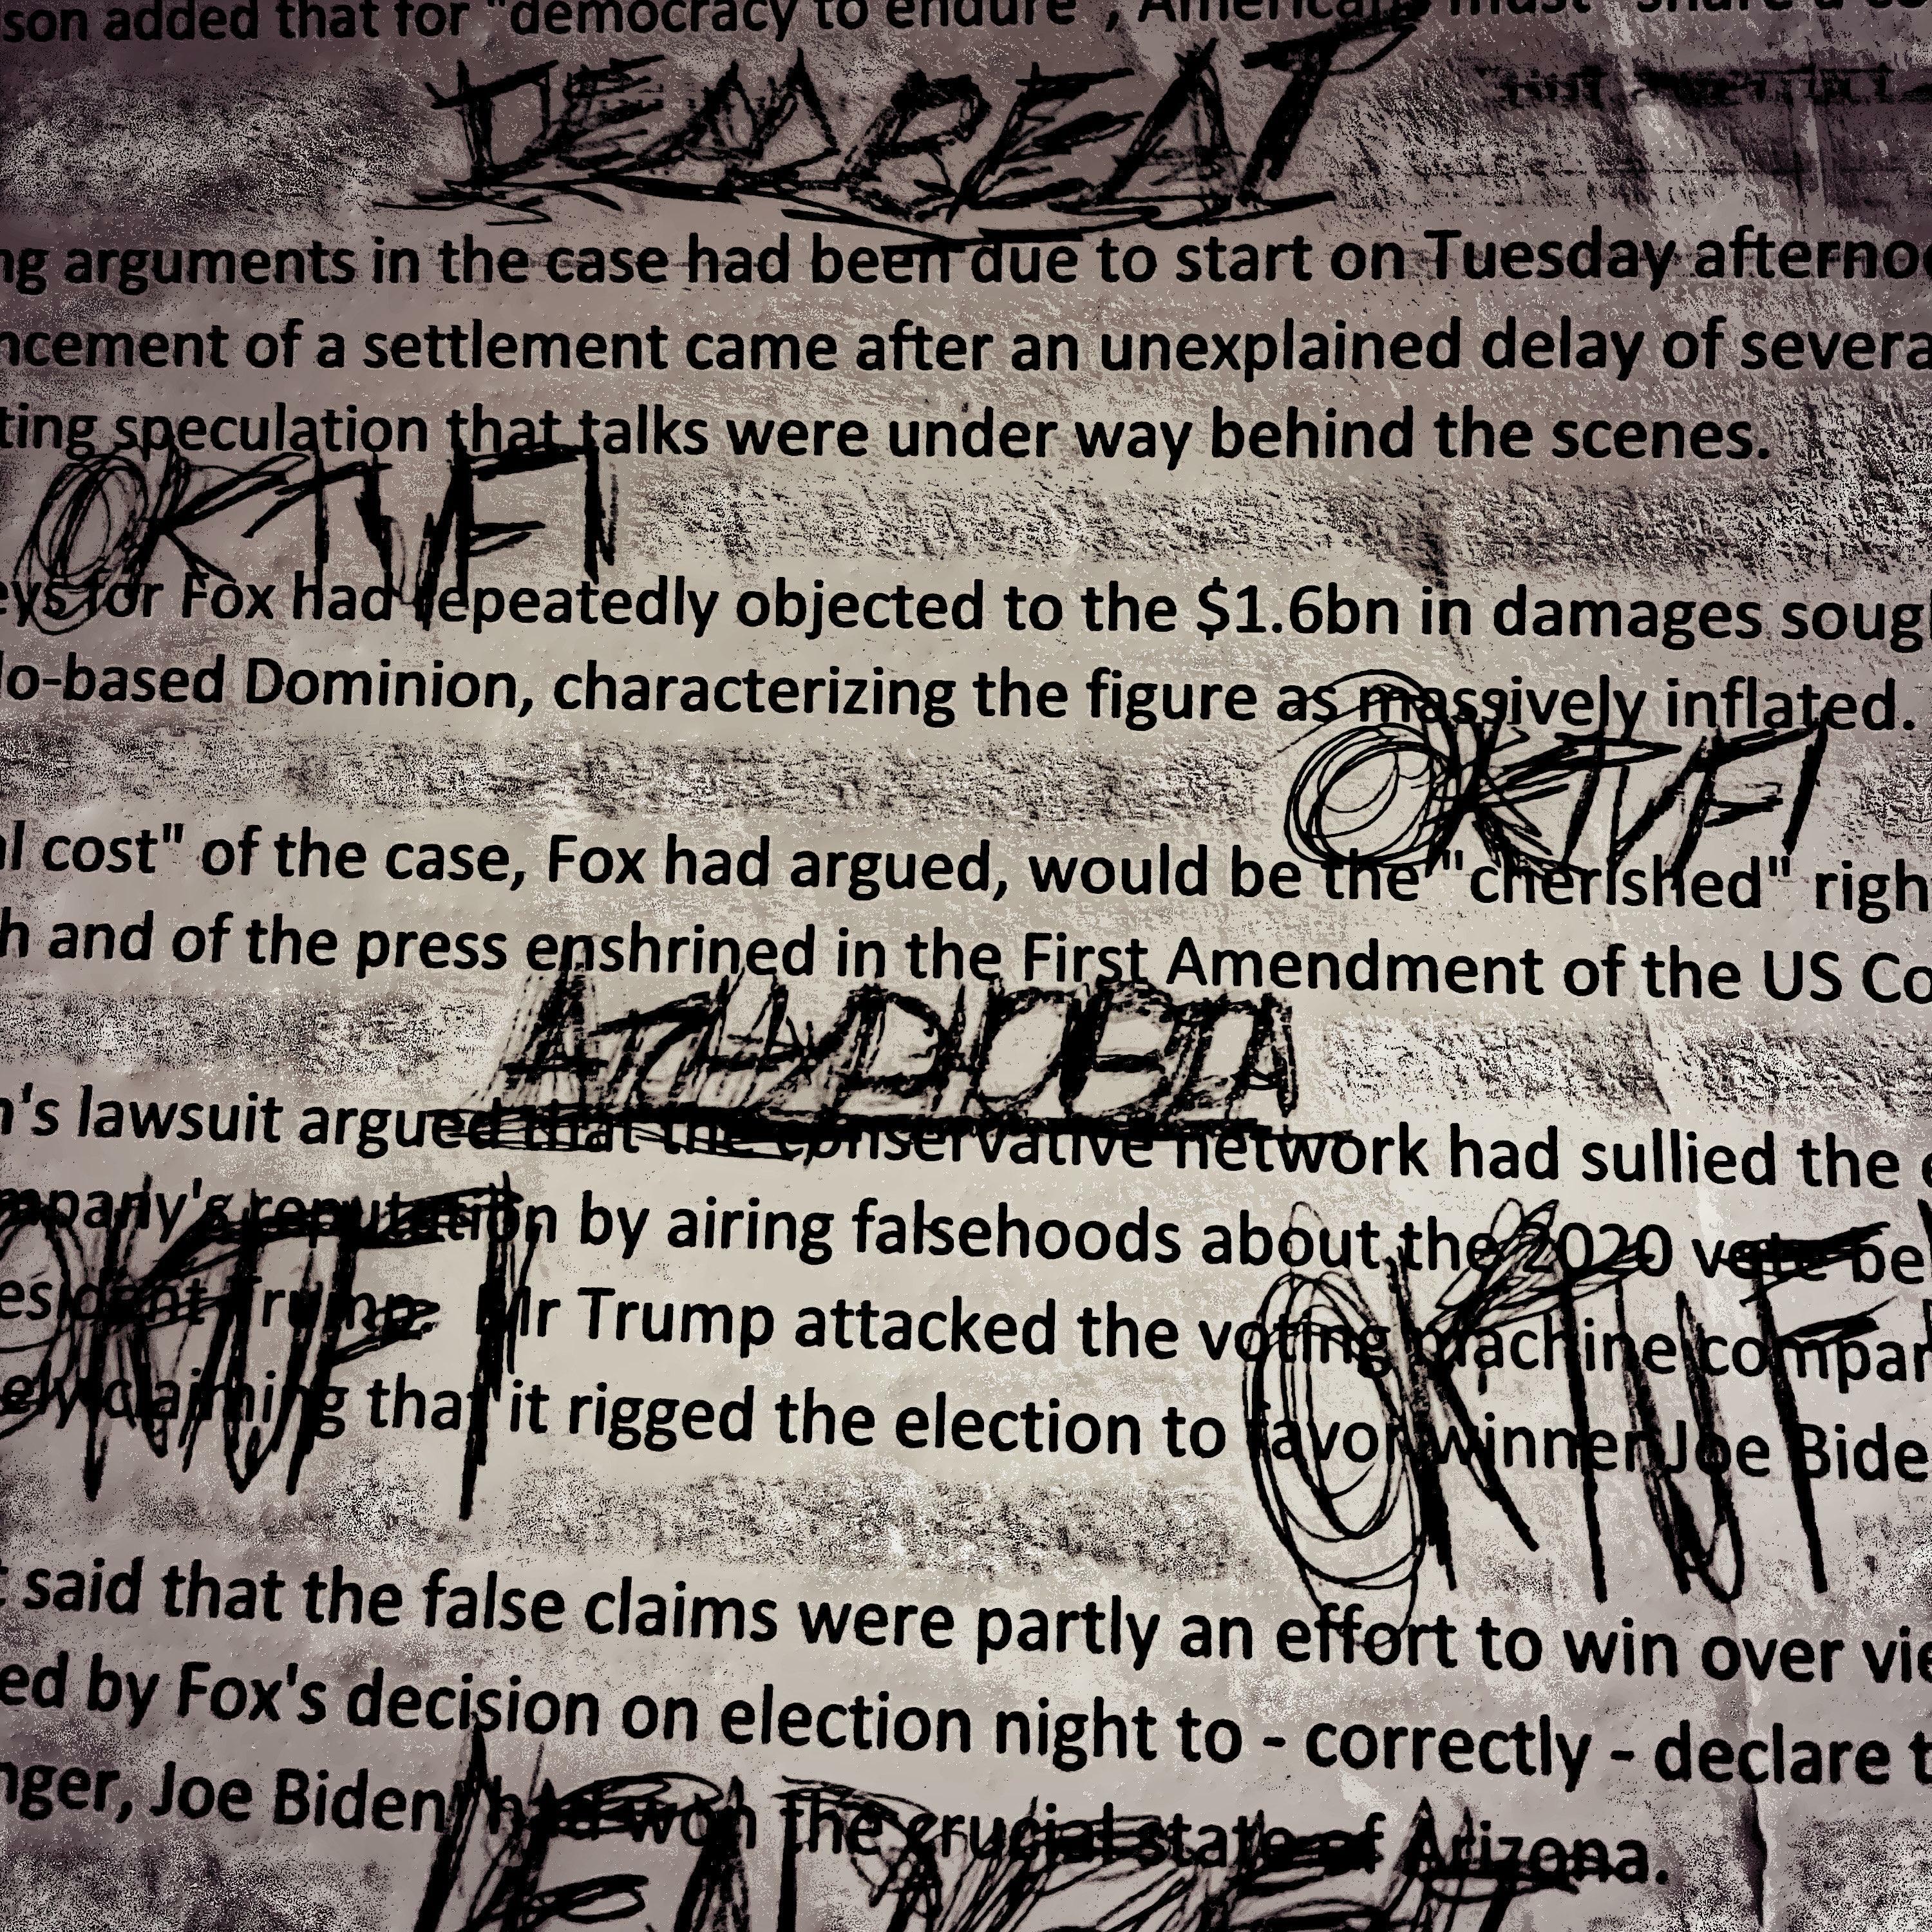 son added that for "democracy to endure", Americans must "share a
DEMBEAT
ng arguments in the case had been due to start on Tuesday afternoo
ncement of a settlement came after an unexplained delay of severa
ting speculation that talks were under way behind the scenes.
OKTVFI
eys for Fox had repeatedly objected to the $1.6bn in damages soug
do-based Dominion, characterizing the figure as massively inflated.
OKTVFI
al cost" of the case, Fox had argued, would be the "cherished" righ
h and of the press enshrined in the First Amendment of the US Co
n's lawsuit argued that the conservative network had sullied the
mpany's reputation by airing falsehoods about the 2020 vote be
esident Trump. Mr Trump attacked the voting machine compan
ely claiming that it rigged the election to favor winner Joe Bide
t said that the false claims were partly an effort to win over vie
ed by Fox's decision on election night to - correctly - declare t
nger, Joe Biden, had won the crucial state of Arizona.